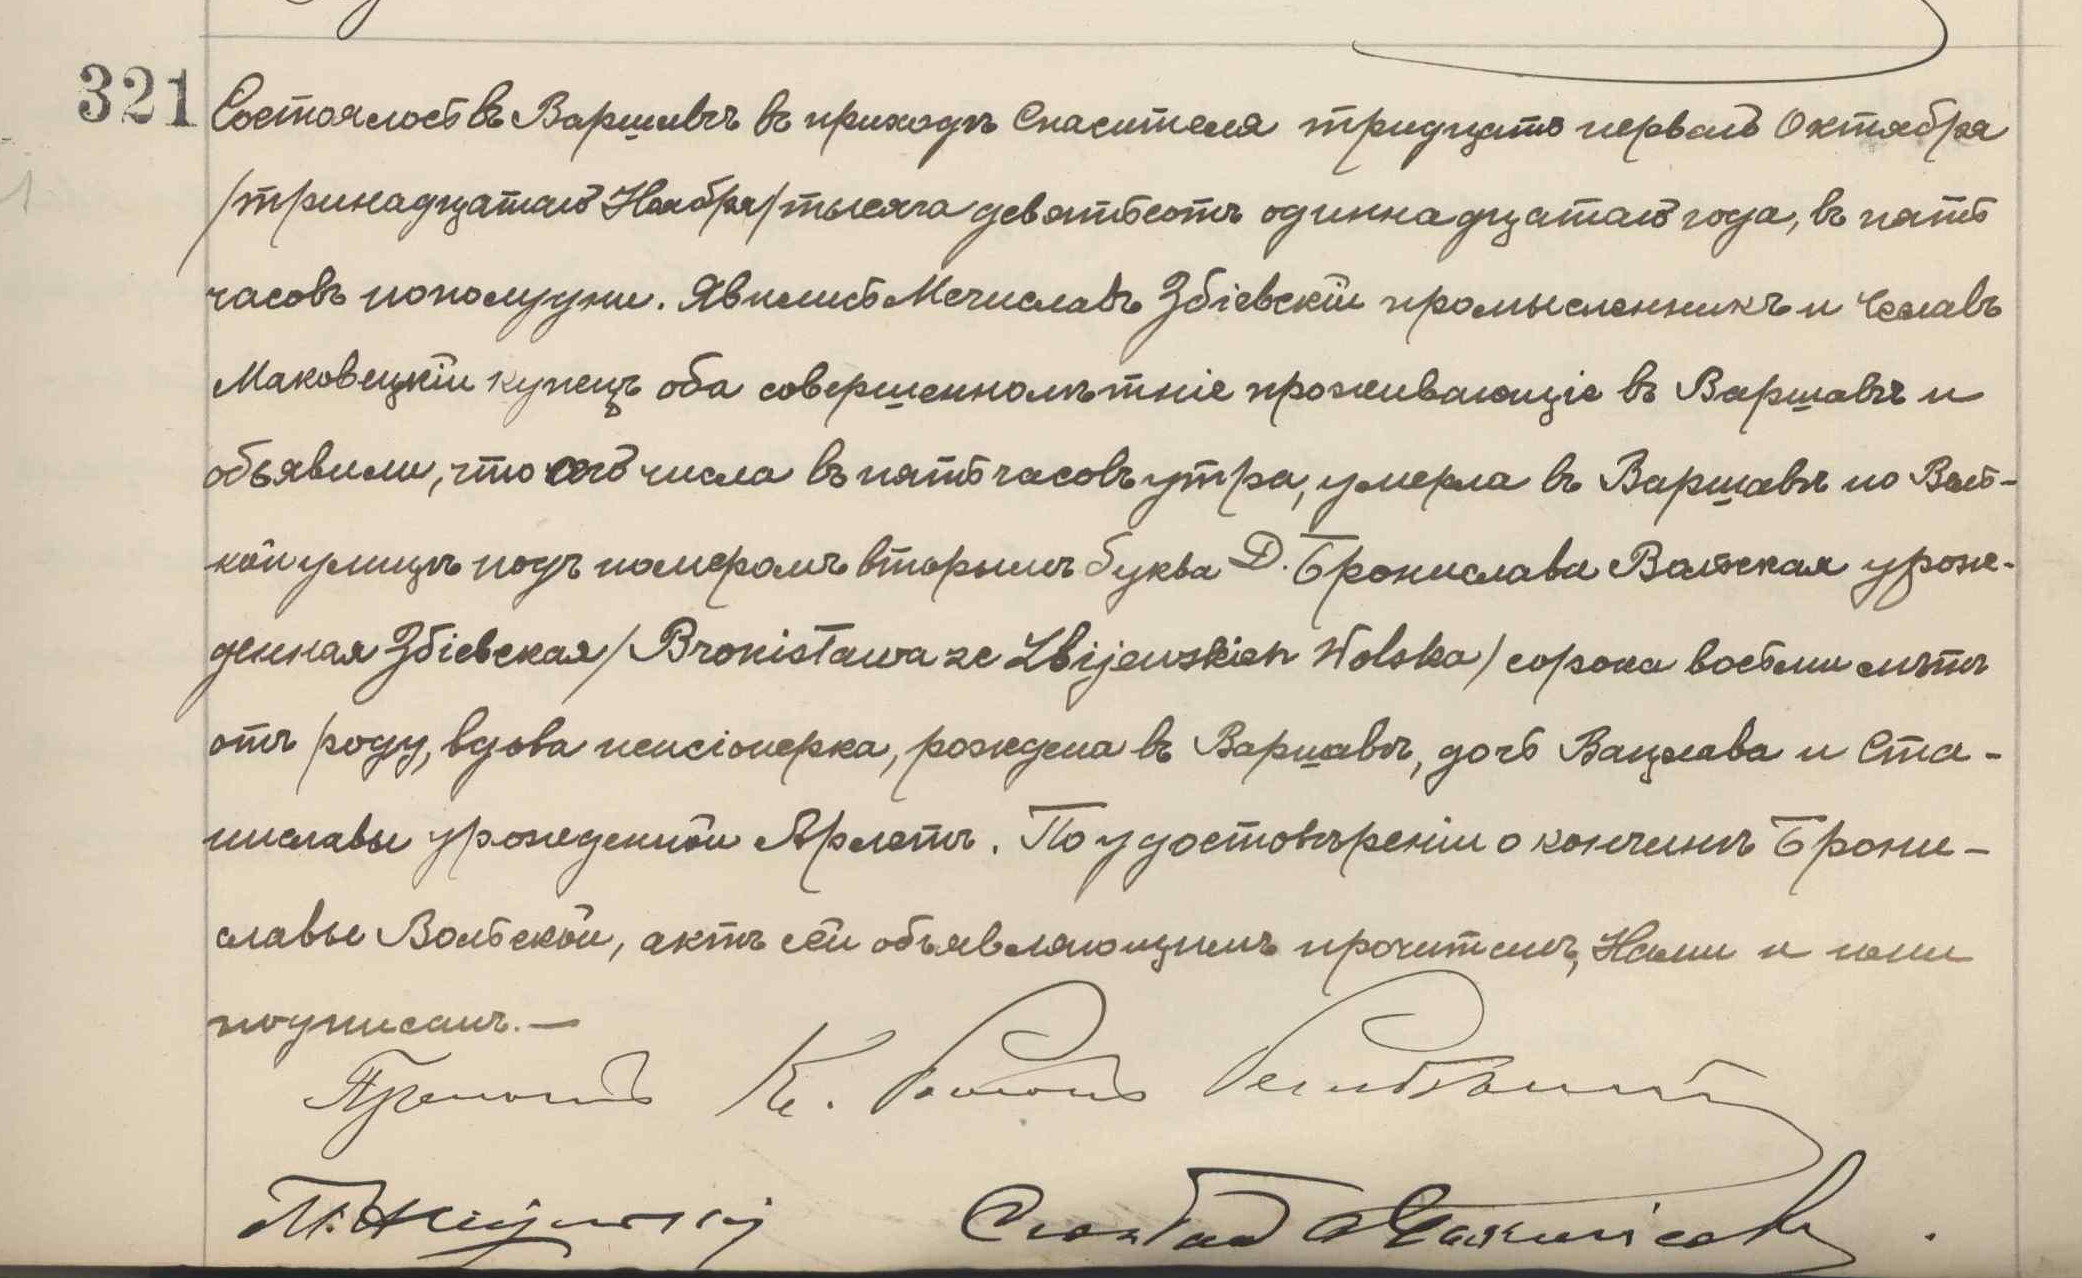 321
Состоялось въ Варшавѣ въ приходѣ Спасителя тридцать перваго Октября
/тринадцатаго Ноября/ тысяча девятьсотъ одиннадцатаго года, въ пять
часовъ пополудни. Явились Мечиславъ Збіевскій промысленникъ и Чеславъ
Маковецкій купецъ оба совершеннолѣтніе проживающіе въ Варшавѣ и
объявили, что сего числа въ пять часовъ утра, умерла въ Варшавѣ по Вольс-
кой улицѣ подъ номеромъ вторымъ буква Д. Бронислава Вольская урож-
денная Збіевская /Bronisława ze Zbijewskich Wolska/ сорока восьми лѣтъ
отъ роду, вдова пенсіонерка, рождена въ Варшавѣ, дочь Вацлава и Ста-
ниславы урожденной Арлетъ. По удостовѣреніи о кончинѣ Брони-
славы Вольской, актъ сей объявляющимъ прочитанъ, Нами и ними
подписанъ. —
К.